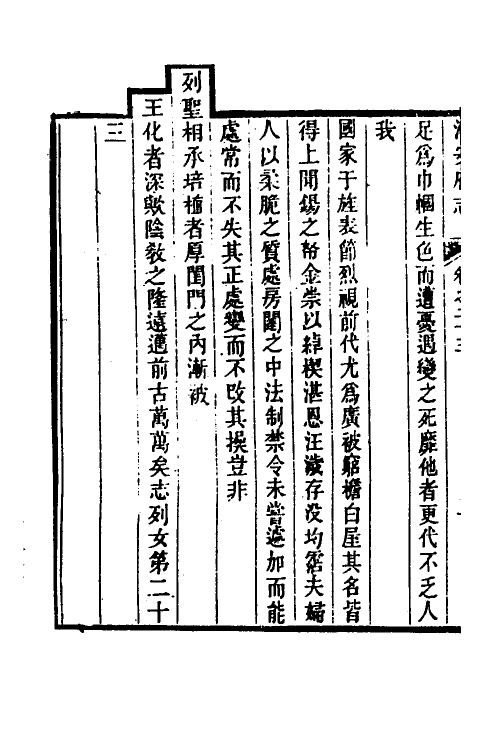 足爲巾幗生色而遭憂遇變之死靡他者更代不乏人
我
國家于旌表節烈視前代尤爲廣被窮檐白屋其名皆
得上聞錫之帑金崇以綽楔湛恩汪濊存没均霑夫婦
人以柔脆之質處房闈之中法制禁令未嘗遽加而能
處常而不失其正處變而不改其操豈非
列聖相承培植者厚閨門之内漸被
王化者深歟陰敎之隆遠邁前古萬萬矣志列女第二十
三